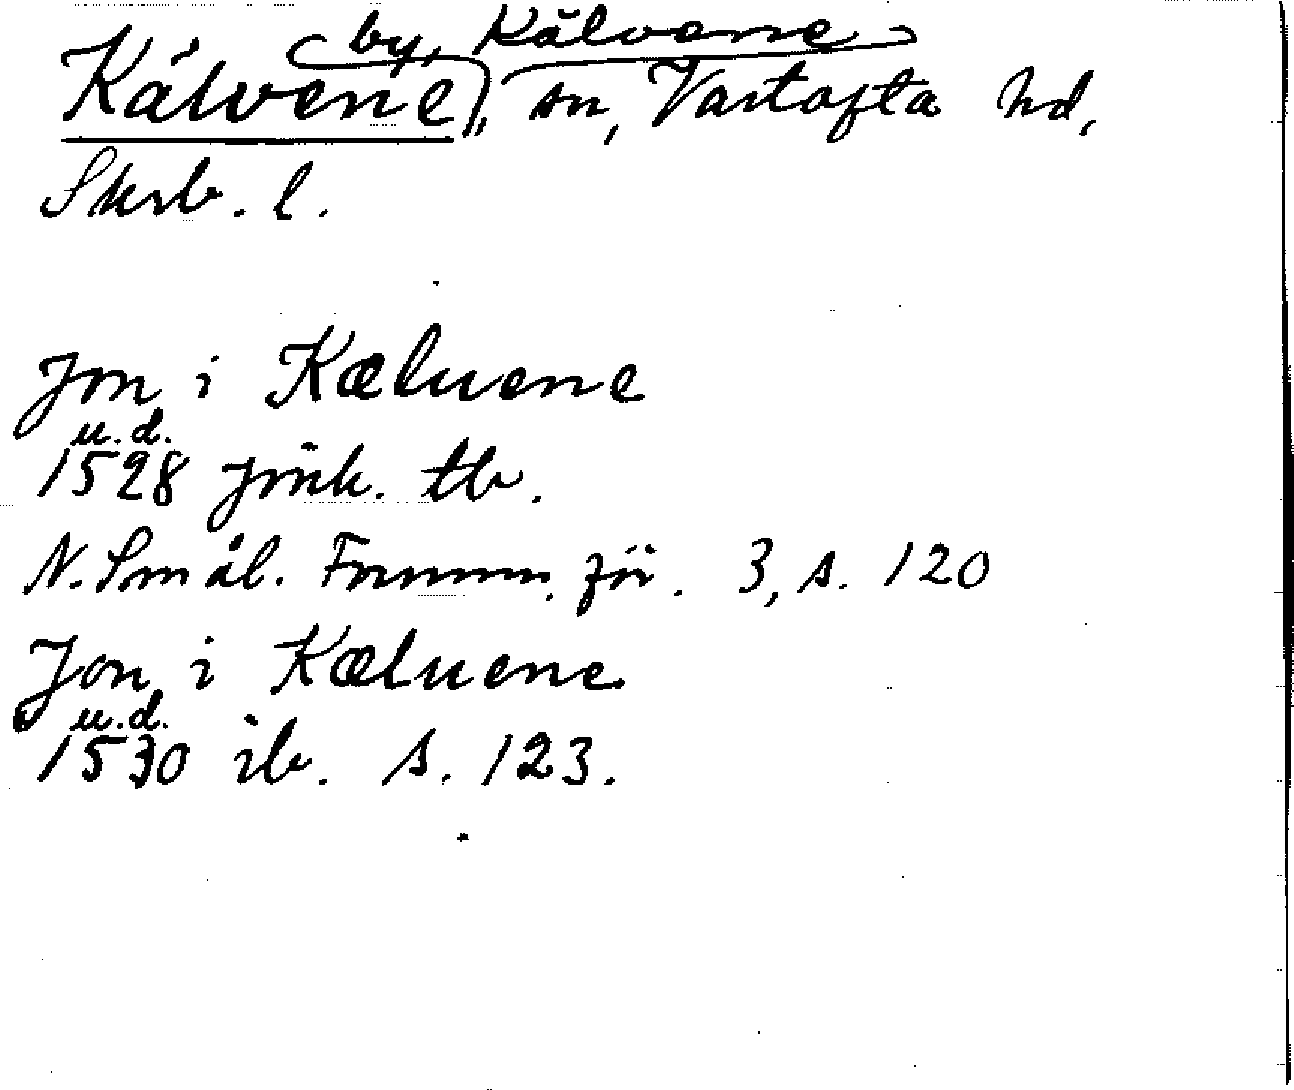 by, Kälvene
Kälvene, sn, Vartofta hd,
Skrb. l.
Jon i Kæluene
u.d.
1528 Jönk. tb.
N. Smål. Fornm. för. 3, s. 120
Jon i Kæluene
u.d.
1530 ib. s. 123.